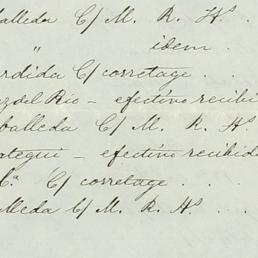 alleda C/ M. R. Hs. .
" idem .
erdida C/ corretage . . .
az del Rio – efectivo recibi
balleda C/ M. R. Hs
ategui – efectivo recibido
Ca. C/ corretage . . .
lleda C/ M. R. Hs. . .